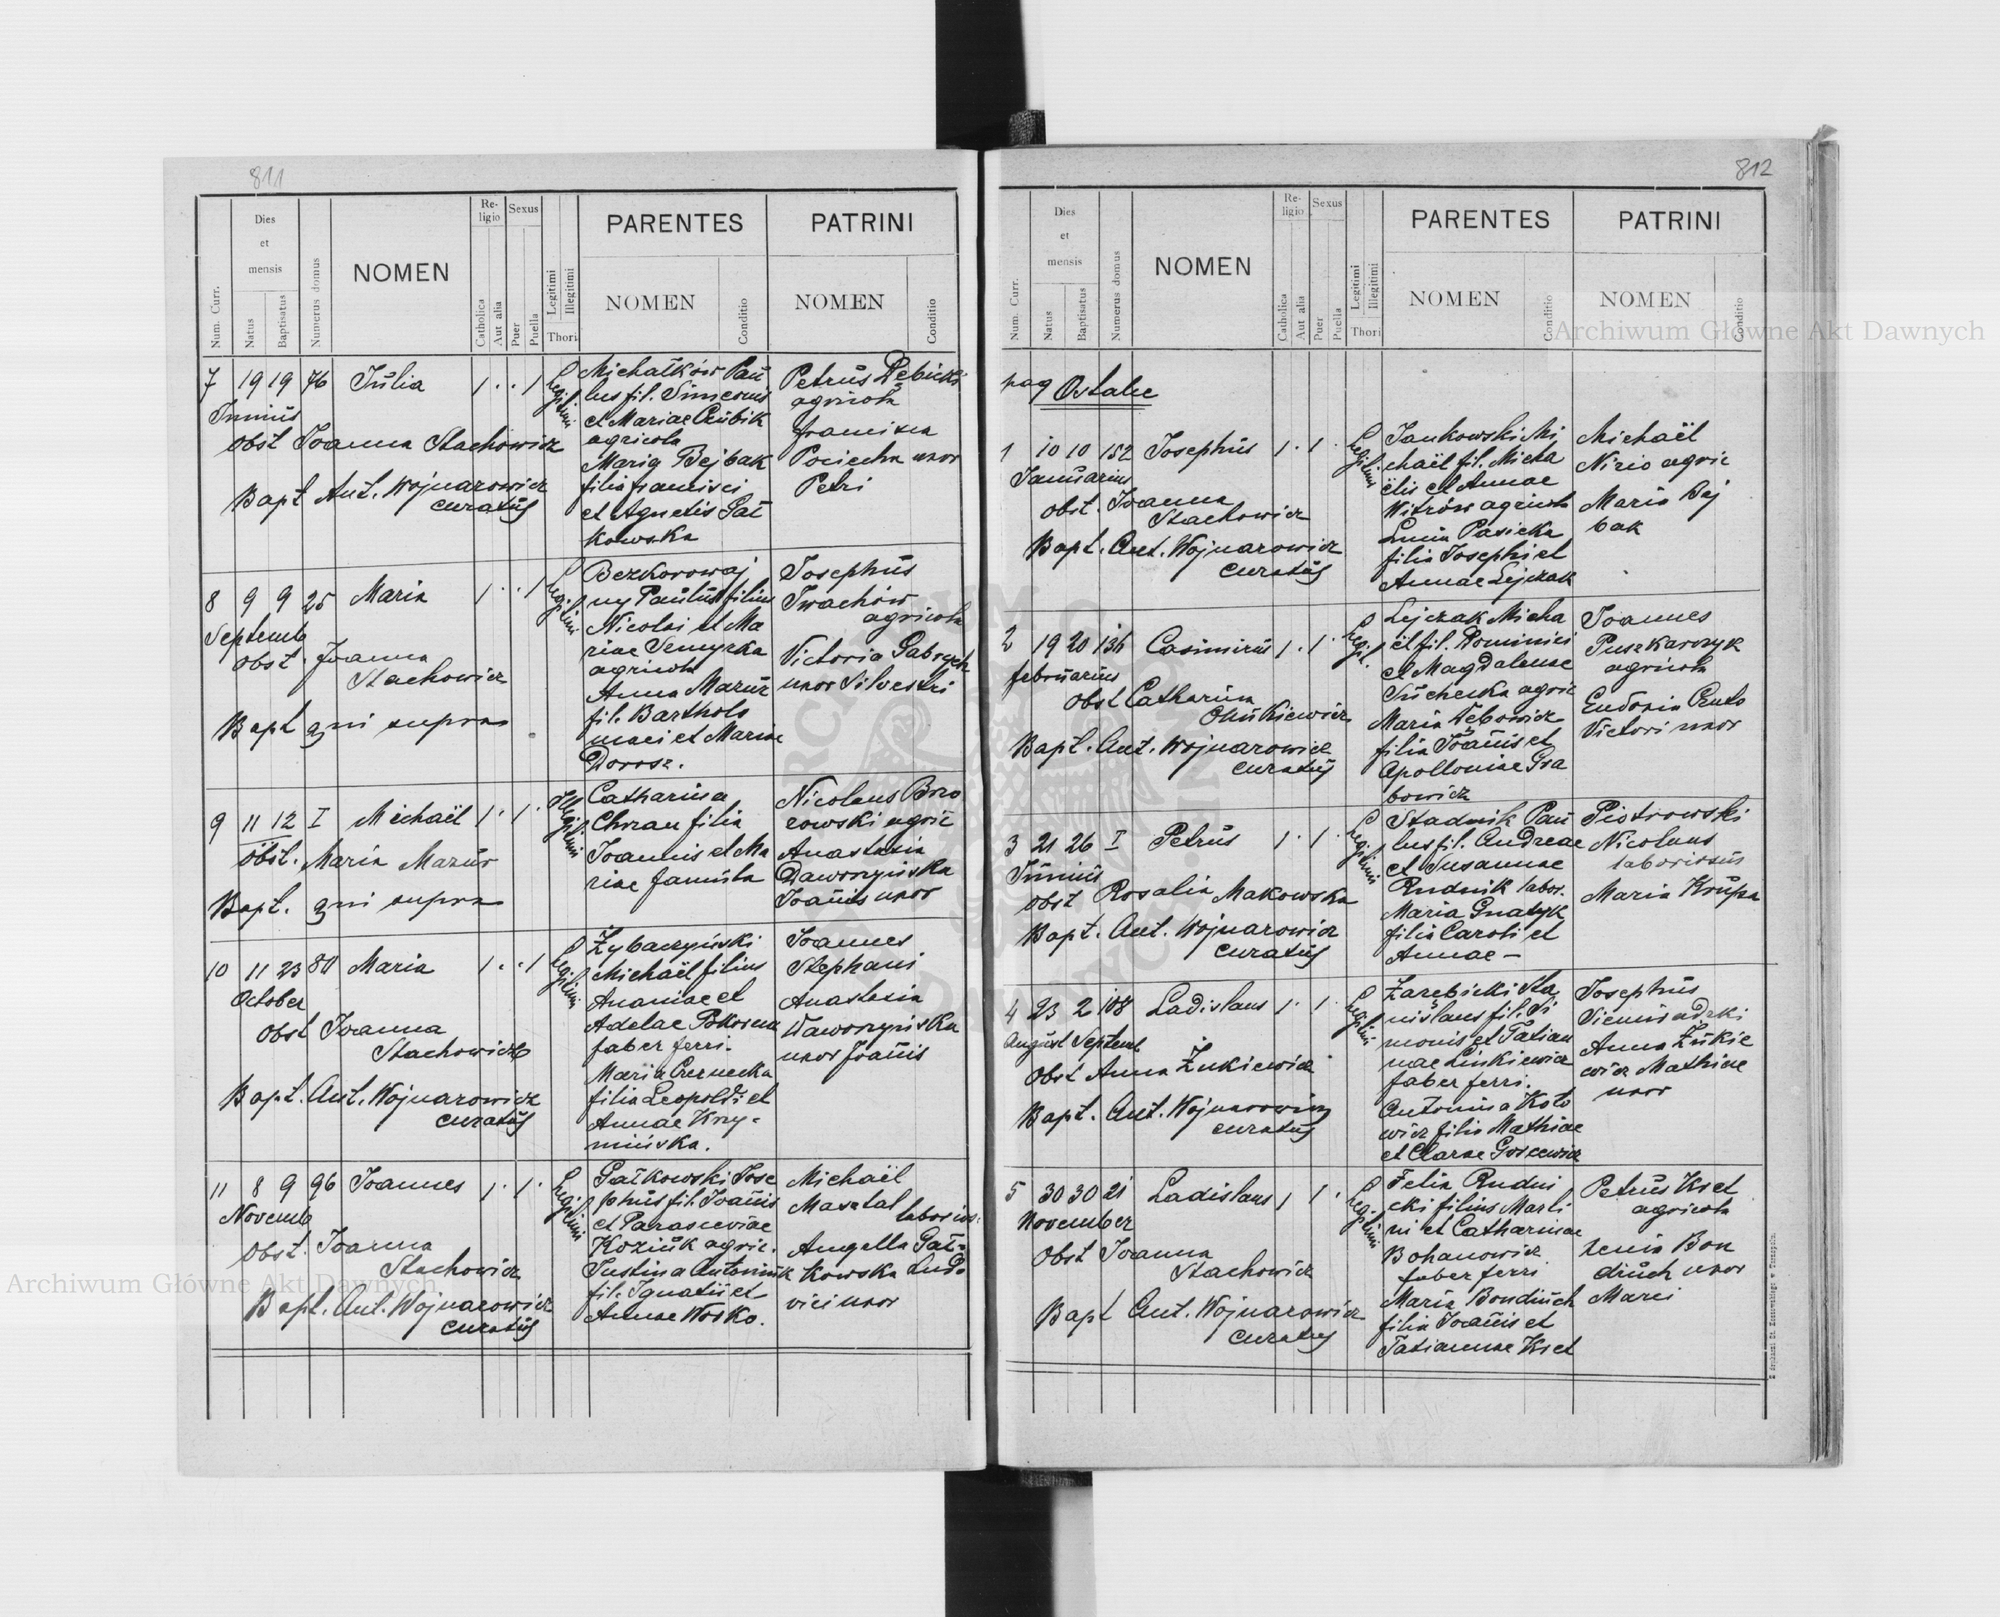 811
Num. Curr.
Dies
et
mensis
Natus
Baptisatus
Numerus domus
NOMEN
Re-
ligio
Catholica
Aut alia
Sexus
Puer
Puella
Legitimi
Illegitimi
Thori
PARENTES
NOMEN
Conditio
PATRINI
NOMEN
Conditio
7 19 19 76 Julia 1 . . 1 Legitimi
Junius
Obst Joanna Stachowicz
Bapt. Ant. Wojnarowicz
curatus
Michałków Pau
lus fil. Simeonis
et Mariae Cubik
agricola
Maria Bejbak
filia francisci
et Agnetis Gał
kowska
Petrus Dębicki
agricola
francisca
Pociecha uxor
Petri
8 9 9 25 Maria 1 . . 1 Legitimi
Septemb
Obst. Joanna
Stachowicz
Bapt qui supra
Bezkorowaj
ny Paulus filius
Nicolai et Ma
riae Semyrka
agricola
Anna Mazur
fil. Bartholo
maei et Mariae
Dorosz.
Josephus
Iwachów
agricola
Victoria Gabrych
uxor Silvestri
9 11 12 I Michaël 1 . 1 . Illegitimi
Obst. Maria Mazur
Bapt. qui supra
Catharina
Chrzan filia
Joannis et Ma
riae famula
Nicolaus Brzo
zowski agric
Anastasia
Daworzyńska
Joānis uxor
10 11 23 80 Maria 1 . . 1 Legitimi
October
Obst Joanna
Stachowicz
Bapt. Ant. Wojnarowicz
curatus
Zybaczyński
Michaël filius
Ananiae et
Adelae
faber ferri.
Maria Czernecka
filia Leopoldi et
Annae Krzy-
mińska.
Joannes
Stephani
Anastasia
Waworzyńska
uxor Joānis
11 8 9 96 Joannes 1 . 1 . Legitimi
Novemb
Obst. Joanna
Stachowicz
Bapt. Ant. Wojnarowicz
curatus
Gałkowski Jose
phus fil. Joānis
et Parasceviae
Koziuk agric.
Justina Antoniuk
fil. Ignatii et
Annae Wośko.
Michaël
Mavatal laborios.
Angella Gał-
kowska Ludo
vici uxor
812
Num. Curr.
Dies
et
mensis
Natus
Baptisatus
Numerus domus
NOMEN
Re-
ligio
Catholica
Aut alia
Sexus
Puer
Puella
Legitimi
Illegitimi
Thori
PARENTES
NOMEN
Conditio
PATRINI
NOMEN
Conditio
pag Ostalce
1 10 10 152 Josephus 1 . 1 . Legitimi
Januarius
obst. Joanna
Stachowicz
Bapt. Ant. Wojnarowicz
curatus
Jankowski Mi
chaël fil. Micha
ëlis et Annae
Witrów agricola
Lucia Pasieka
filia Josephi et
Annae Lejczak
Michaël
Nizio agric
Maria Bej
bak
2 19 20 136 Casimirus 1 . 1 . Legit.
februarius
Obst Catharina
Bapt. Ant. Wojnarowicz
curatus
Lejczak Micha
ël fil. Dominici
et Magdalenae
Suchecka agric
Maria Łębowicz
filia Joānis et
Apolloniae Gra
bowicz
Joannes
Puszkarczyk
agricola
Eudoxia
Victori uxor
3 21 26 I Petrus 1 . 1 . Legitimi
Junius
obst Rosalia Makowska
Bapt. Ant. Wojnarowicz
curatus
Stadnik Pau
lus fil. Andreae
et Susannae
Rudnik labor.
Maria Gnatyk
filia Caroli et
Annae —
Piotrowski
Nicolaus
laboriosus
Maria Krupa
4 23 2 108 Ladislaus 1 . 1 . Legitimi
August Septemb
Obst Anna Żukiewicz
Bapt. Ant. Wojnarowicz
curatus
Zarebicki Sta
nislaus fil. Si
monis et Tatian
nae Linkiewicz
faber ferri.
Antonina Koto
wicz filia Mathiae
et Clarae
Josephus
Siemiradzki
Anna Żukie
wicz Mathiae
uxor
5 30 30 21 Ladislaus 1 1 . Legitimi
November
Obst Joanna
Stachowicz
Bapt Ant. Wojnarowicz
curatus
Felix Rudni
cki filius Marti
ni et Catharinae
Bohanowicz
faber ferri
Maria Bondruch
filia Joānis et
Tatiannae Kret
Petrus Kret
agricola
Xenia Bon
druch uxor
Marci
Archiwum Główne Akt Dawnych
Archiwum Główne Akt Dawnych